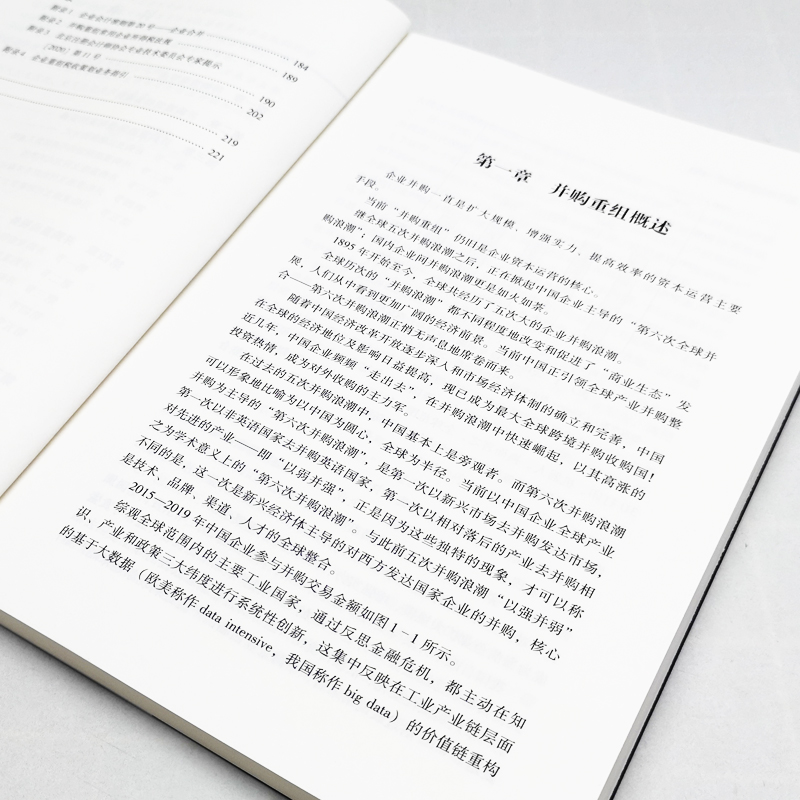 附录1 企业会计准则第20号——企业合并 184
附录2 189
附录3 北京注册会计师协会专业技术委员会专家提示
〔2020〕第11号 190
附录4 202
219
221
第一章 并购重组概述
企业并购一直是扩大规模、增强实力、提高效率的资本运营主要
手段。
当前“并购重组”仍旧是企业资本运营的核心。
继全球五次并购浪潮之后，正在掀起中国企业主导的“第六次全球并
购浪潮”；国内企业间并购浪潮更是如火如荼。
1895年开始至今，全球共经历了五次大的企业并购浪潮。
全球历次的“并购浪潮”都不同程度地改变和促进了“商业生态”发
展，人们从中看到更加广阔的经济前景。当前中国正引领全球产业并购整
合——第六次并购浪潮正悄无声息地席卷而来。
随着中国经济改革开放逐步深入和市场经济体制的确立和完善，中国
在全球的经济地位及影响日益提高，现已成为最大全球跨境并购收购国！
近几年，中国企业频频“走出去”，在并购浪潮中快速崛起，以其高涨的
投资热情，成为对外收购的主力军。
在过去的五次并购浪潮中，中国基本上是旁观者。而第六次并购浪潮
可以形象地比喻为以中国为圆心，全球为半径。当前以中国企业全球产业
并购为主导的“第六次并购浪潮”，是第一次以新兴市场去并购发达市场，
第一次以非英语国家去并购英语国家，第一次以相对落后的产业去并购相
对先进的产业——即“以弱并强”，正是因为这些独特的现象，才可以称
之为学术意义上的“第六次并购浪潮”。与此前五次并购浪潮“以强并弱”
不同的是，这一次是新兴经济体主导的对西方发达国家企业的并购，核心
是技术、品牌、渠道、人才的全球整合。
2015—2019年中国企业参与并购交易金额如图1－1所示。
综观全球范围内的主要工业国家，通过反思金融危机，都主动在知
识、产业和政策三大纬度进行系统性创新，这集中反映在工业产业链层面
的基于大数据（欧美称作data intensive，我国称作big data）的价值链重构